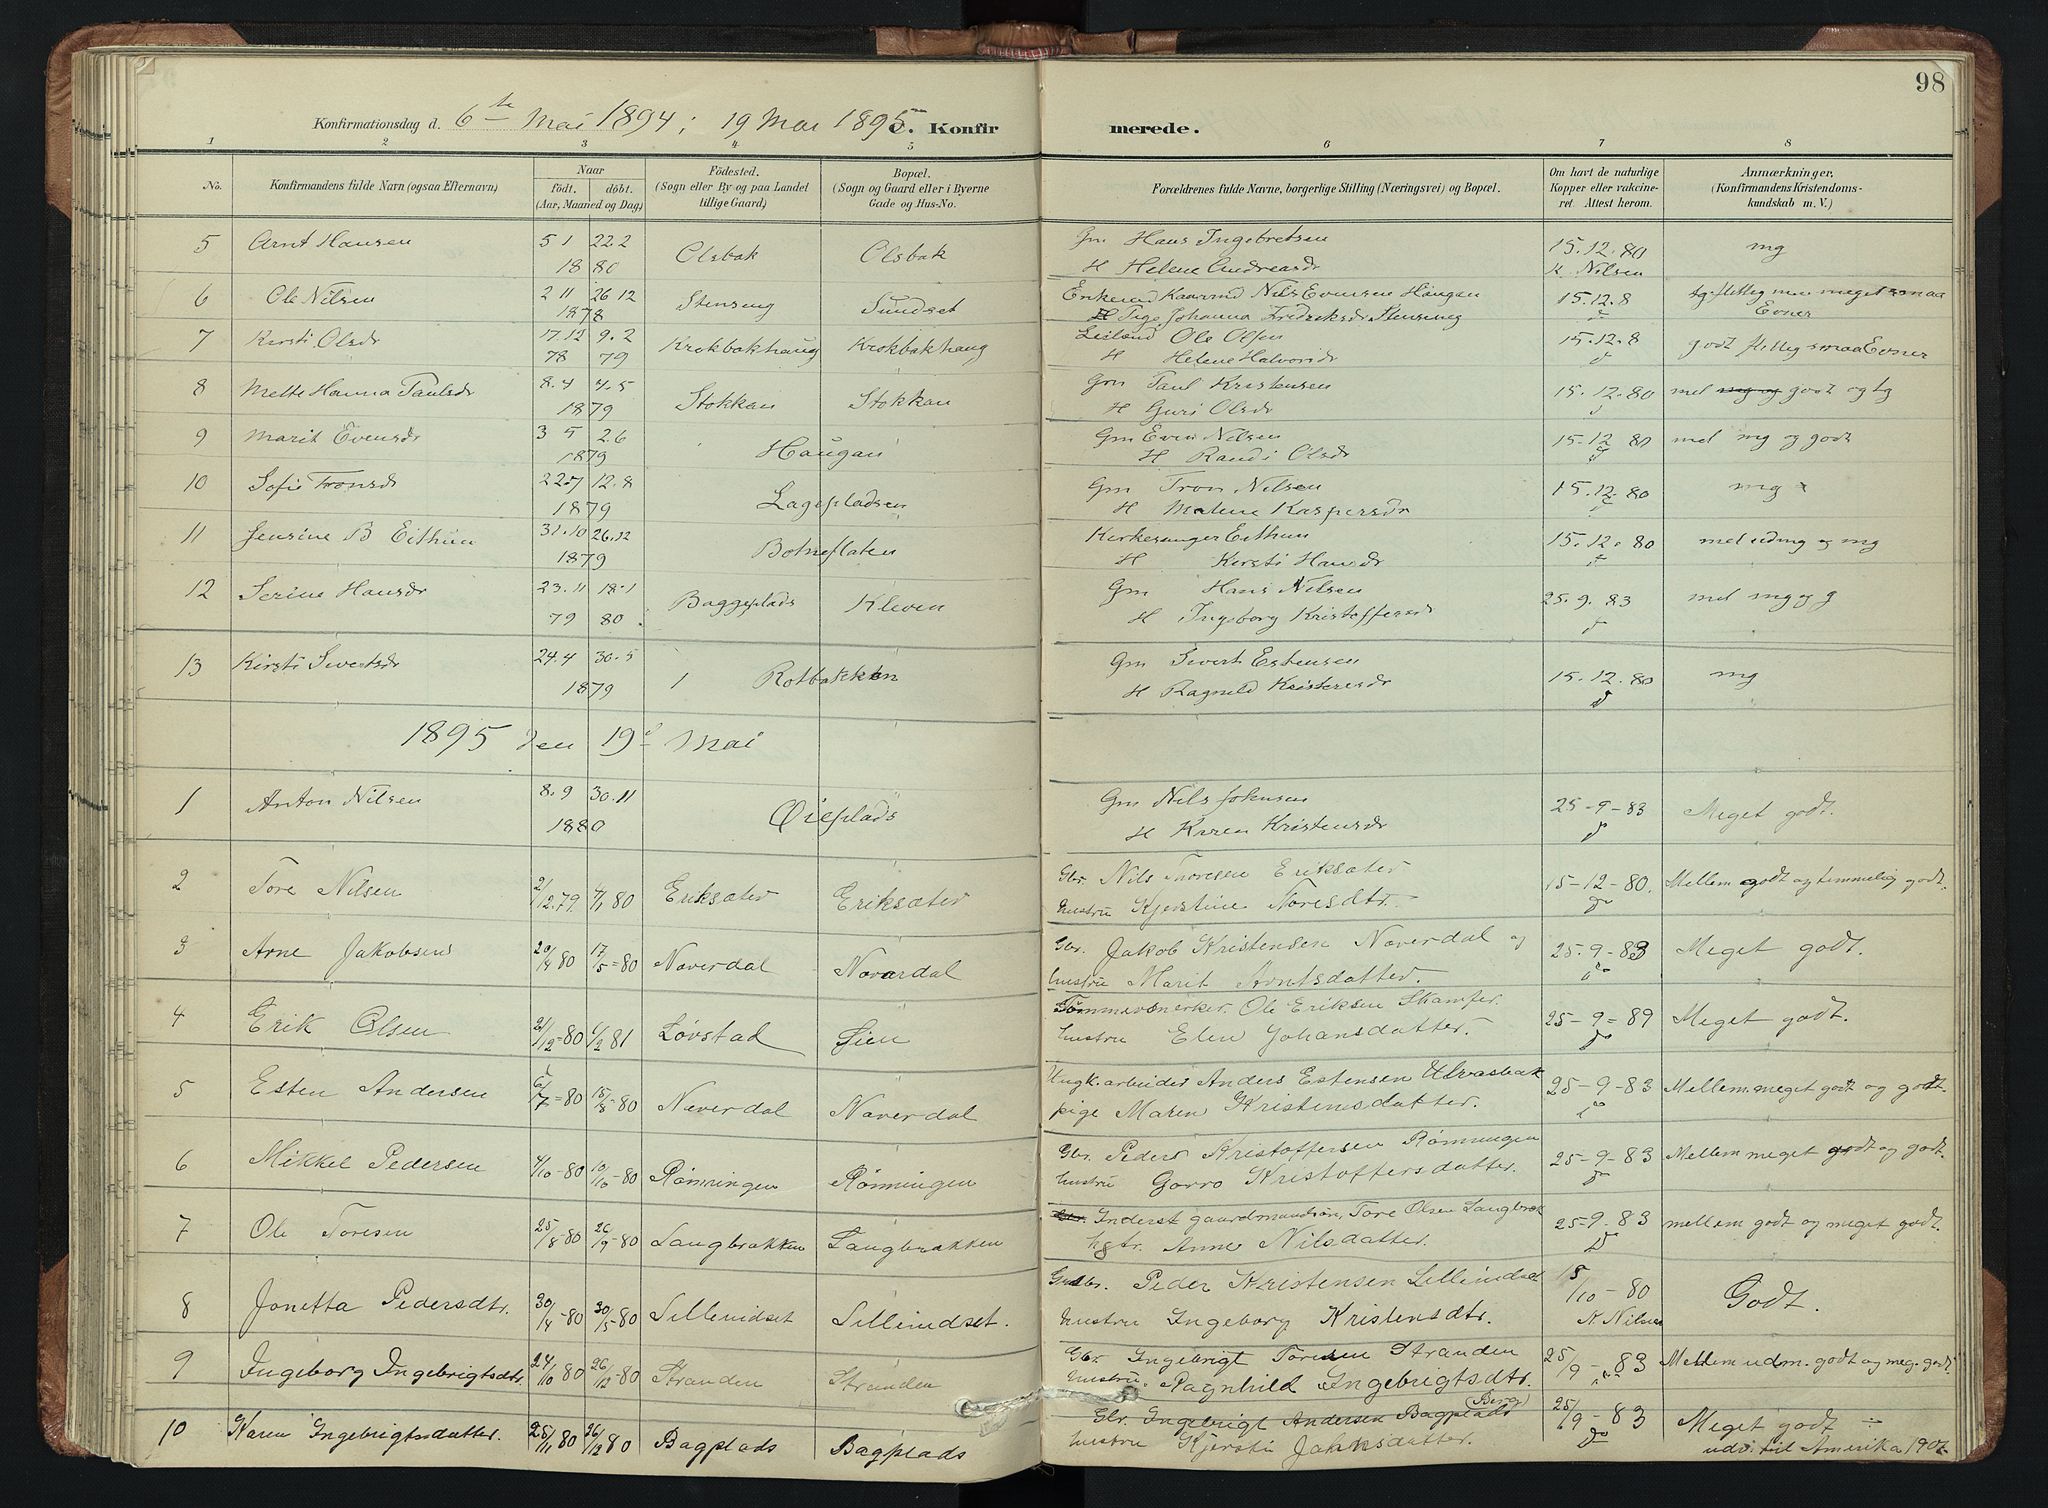 98
Konfirmationsdag d. 6te Mai 1894; 19 Mai 1895 C. Konfirmerede.
1 2 3 4 5 6 7 8
No.
Konfirmandens fulde Navn (ogsaa Efternavn)
Naar
födt. döbt.
(Aar, Maaned og Dag)
Födested.
(Sogn eller By og paa Landet
tillige Gaard)
Bopæl.
(Sogn og Gaard eller i Byerne
Gade og Hus-No.
Forældrenes fulde Navne, borgerlige Stilling (Næringsvei) og Bopæl.
Om havt de naturlige
Kopper eller vakcine-
ret. Attest herom.
Anmærkninger.
(Konfirmandens Kristendoms-
kundskab m. V.)
5 Arnt Hansen 5 1 22.2 Olsbak Olsbak Gm Hans Ingebretsen 15.12.80 mg
1880 H Helene Andreasdr K. Nilsen
6 Ole Nilsen 2 11 26 12 Stenseng Sundset Enkemd Kaarmd Nils Evensen Haugan 15.12.8 tg. flittig men meget smaa
1878 Pige Johanna Fredriksdr Stenseng Evner
7 Kirsti Olsdr 17.12 9.2 Krokbakhaug Krokbakhaug Leilænd Ole Olsen 15.12.8 godt flittig smaa Evner
78 79 H Helene Halvorsdr
8 Mette Hanna Paulsdr 8.4 4.5 Stokkan Stokkan Gm Paul Kristensen 15.12.80 mel mg og godt og tg
1879 H Guri Olsdr
9 Marit Evensdr 3 5 2 6 Haugan Gm Even Nilsen 15.12 80 mel mg og godt
1879 H Randi Olsdr
10 Sofie Tronsdr 22.7 12.8 Lagepladsen Gm Tron Nilsen 15.12.80 mg
1879 H Malene Kaspersdr
11 Jensine B Eithun 31.10 26.12 Botneflaten Kirkesanger Eithun 15.12.80 mel udmg og mg
1879 H Kirsti Hansdr
12 Serine Hansdr 23.11 18.1 Baggeplads Kleven Gm Hans Nilsen 25.9.83 mel mg og g
79 80 H Ingeborg Kristoffersdr
13 Kirsti Sivertsdr 24.4 30.5 Rotbakken Gm Sivert Estensen 15.12.80 mg
1879 H Ragnild Kristensdr
1895 den 19d Mai
1 Anton Nilsen 8.9 30.11 Øieplads Gm Nils Johnsen 25-9-83 Meget godt.
1880 H Karen Kristensdr
2 Tore Nilsen 2/12.79 4/1 80 Eriksæter Eriksæter Gbr. Nils Thoresen Eriksæter 15-12-80. Mellem godt og temmelig godt.
hustru Kjerstine Toresdtr. do
3 Arne Jakobsen 20/4 80 17/5-80 Naverdal Naverdal Gbr. Jakob Kristensen Naverdal og 25-9-83 Meget godt.
hustru Marit Arntsdatter. do
4 Erik Olsen 21/12-80 4/2 81 Løvstad Øien Tømmermerker. Ole Eriksen Skamfer. 25-9-89 Meget godt.
hustru Elen Johansdatter. do
5 Esten Andersen 6/7-80 15/8-80 Naverdal Naverdal Ungk. arbeider Anders Estensen Ulvasbak 25-9-83 Mellem meget godt og godt.
pige Maren Kristensdatter. do
6 Mikkel Pedersen 4/10-80 10/10-80 Rønningen Rønningen Gbr. Peder Kristoffersen Rønningen 25-9-83 Mellem meget godt og godt.
hustru Gorro Kristoffersdatter. do
7 Ole Toresen 25/8-80 26/9-80 Langbrækken Langbrækken Inderst gaardmandsøn, Tore Olsen Langbræk 25-9-83 mellem godt og meget godt.
hstr. Anne Nilsdatter. do
8 Jonetta Pedersdtr. 30/4-80 30/5-80 Lillemdset Lillemdset. Gbr. Peder Kristensen Lillemdset 15/10-80 Godt.
hustru Ingeborg Kristensdtr. K. Nilsen
9 Ingeborg Ingebrigtsdtr. 24/10 80 26/12-80 Stranden Stranden Gbr. Ingebrigt Toresen Stranden 25/9-83 Mellem udm. godt og meg. godt
hustru. Ragnhild Ingebrigtsdtr.
10 Karen Ingebrigtsdatter. 25/11 80 26/12 80 Bagplads Bagplads Gbr. Ingebrigt Andersen Bagplads (Berg) 25/9-83 Meget godt
hustru Kjersti Jakobsdatter. do udv. til Amerika 1902